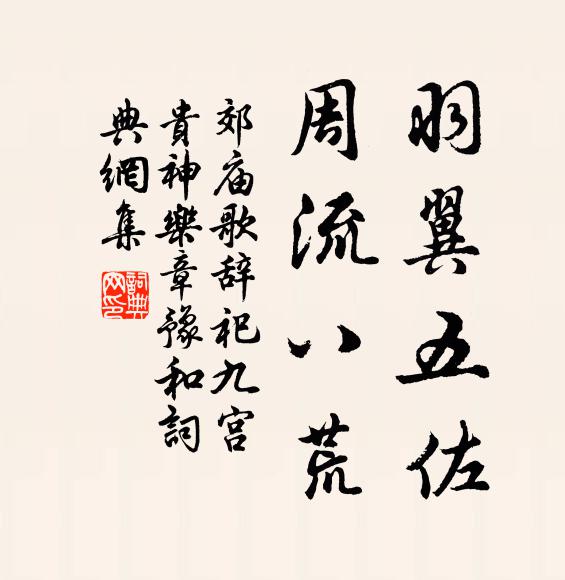 羽翼五佐
周流八荒
郊庙歌辞祀九宫
貴神樂章豫和詞
典網集
詞典网印